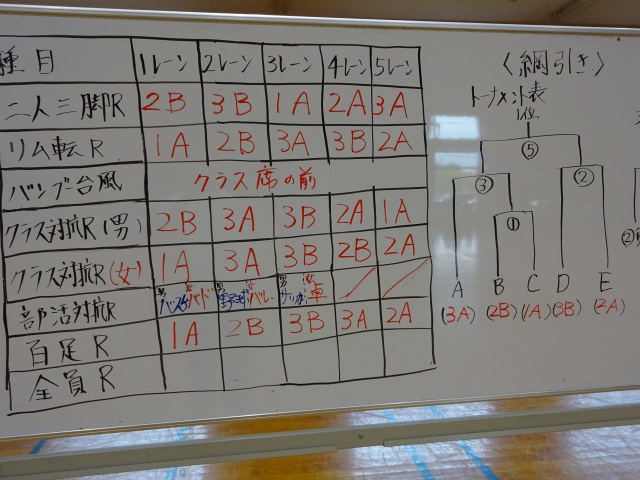 種目 1レーン 2レーン 3レーン 4レーン 5レーン
二人三脚R 2B 3B 1A 2A 3A
リム転R 1A 2B 3A 3B 2A
バンブー台風 クラス席の前
クラス対抗R(男) 2B 3A 3B 2A 1A
クラス対抗R(女) 1A 3A 3B 2B 2A
部活対抗R 男バスケ 女バド 男野球 女バレー 男サッカー 女卓
百足R 1A 2B 3B 3A 2A
全員R
〈綱引き〉
トーナメント表
1位
⑤
③ ②
①
A B C D E
(3A) (2B) (1A) (3B) (2A)